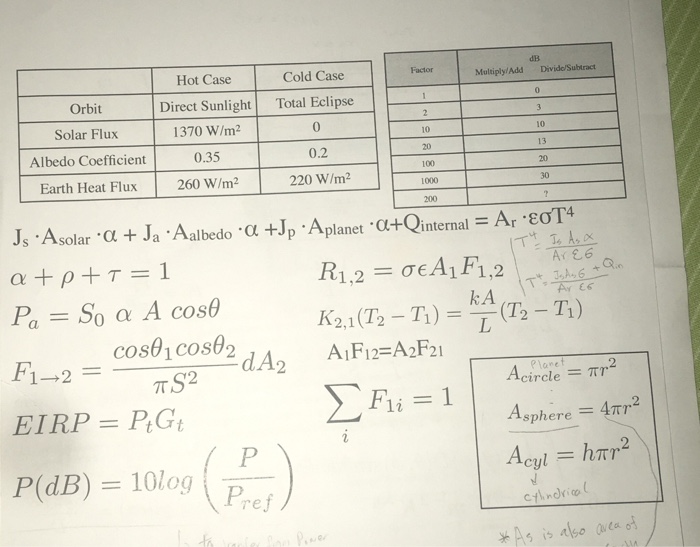 Hot Case Cold Case
Orbit Direct Sunlight Total Eclipse
Solar Flux 1370 W/m² 0
Albedo Coefficient 0.35 0.2
Earth Heat Flux 260 W/m² 220 W/m²
Factor dB
Multiply/Add Divide/Subtract
1 0
2 3
10 10
20 13
100 20
1000 30
200 ?
Jₛ · A_solar · α + Jₐ · A_albedo · α + Jₚ · A_planet · α + Q_internal = Aᵣ · εσT⁴
T⁴ = Jₛ Aₛ α / Aᵣ ε σ
α + ρ + τ = 1
R₁,₂ = σϵA₁F₁,₂
Pₐ = S₀ α A cosθ
K₂,₁(T₂ − T₁) = kA/L (T₂ − T₁)
F₁→₂ = cosθ₁cosθ₂ / πS² dA₂
A₁F₁₂=A₂F₂₁
EIRP = PₜGₜ
∑ᵢ F₁ᵢ = 1
P(dB) = 10log (P / P_ref)
Planet
A_circle = πr²
A_sphere = 4πr²
A_cyl = hπr²
cylindrical
* As is also area of